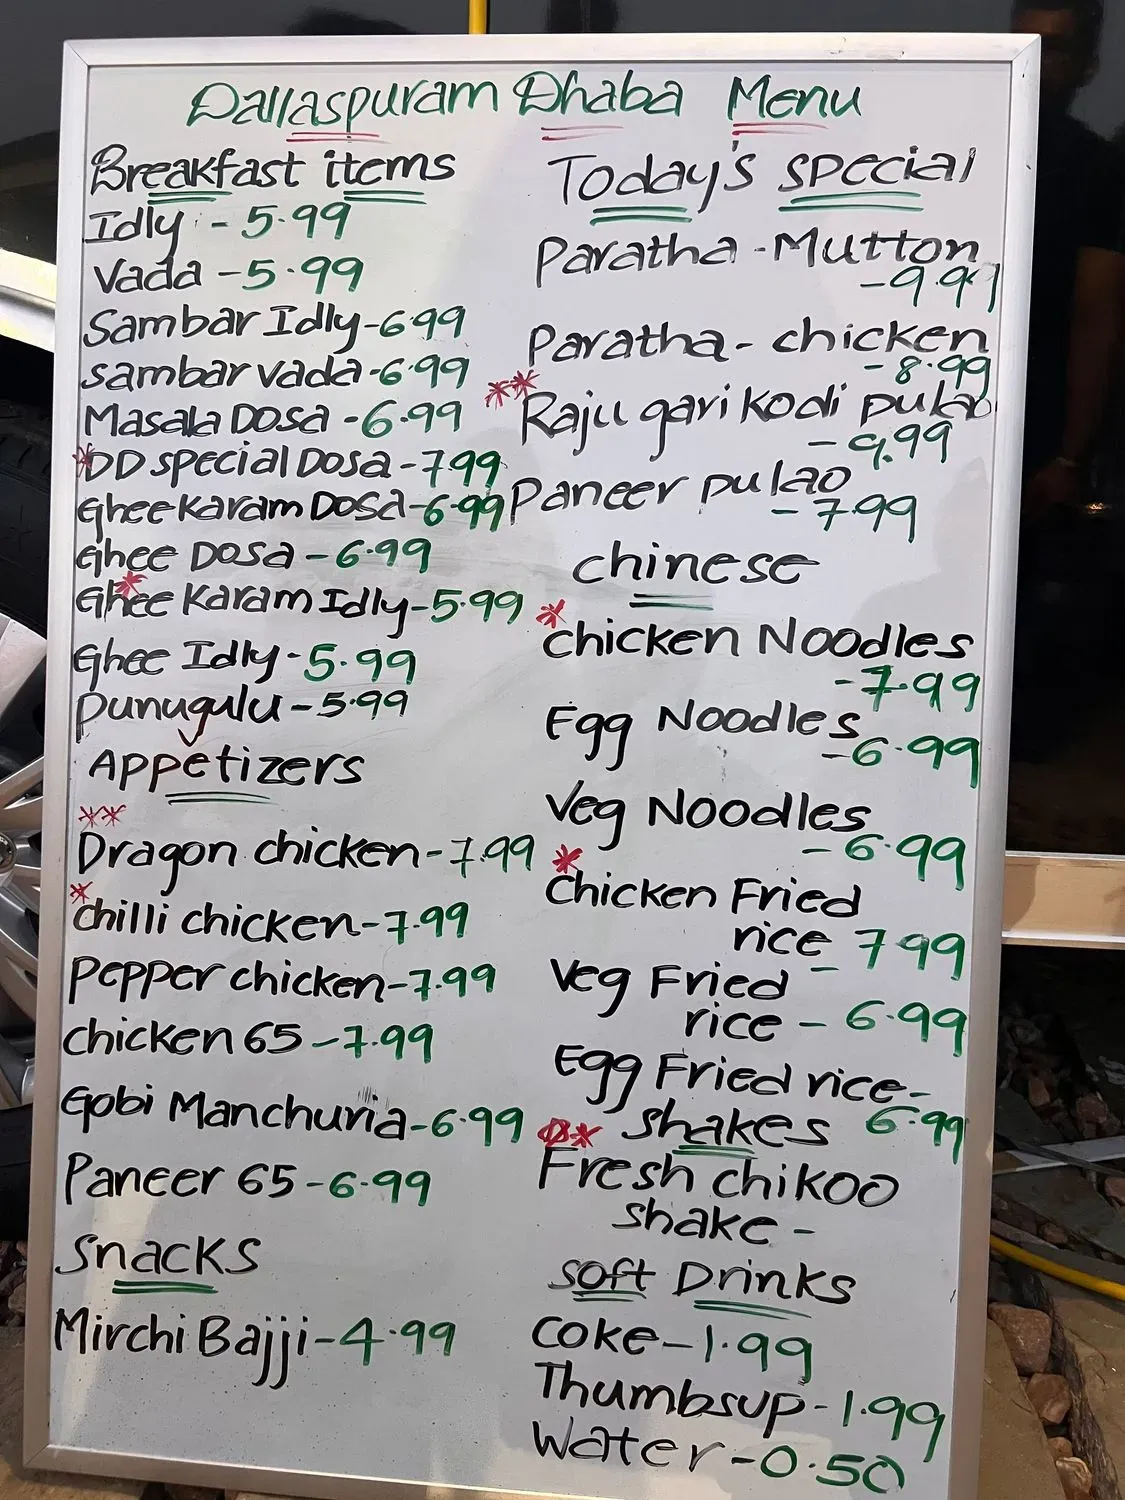 Dallaspuram Dhaba Menu
Breakfast items
Idly - 5.99
Vada - 5.99
Sambar Idly - 6.99
sambar vada - 6.99
Masala Dosa - 6.99
*DD special Dosa - 7.99
Ghee Karam Dosa - 6.99
Ghee Dosa - 6.99
*
Ghee Karam Idly - 5.99
Ghee Idly - 5.99
punugulu - 5.99
Appetizers
**
Dragon chicken - 7.99
*
chilli chicken - 7.99
Pepper chicken - 7.99
chicken 65 - 7.99
Gobi Manchuria - 6.99
Paneer 65 - 6.99
Snacks
Mirchi Bajji - 4.99
Today's special
Paratha - Mutton
- 9.99
Paratha - chicken
- 8.99
**
Raju gari kodi pulao
- 9.99
Paneer pulao
- 7.99
chinese
*
chicken Noodles
- 7.99
Egg Noodles
- 6.99
Veg Noodles
- 6.99
*
Chicken Fried
rice - 7.99
Veg Fried
rice - 6.99
Egg Fried rice -
6.99
** shakes
Fresh chikoo
shake -
soft Drinks
coke - 1.99
Thumbsup - 1.99
Water - 0.50